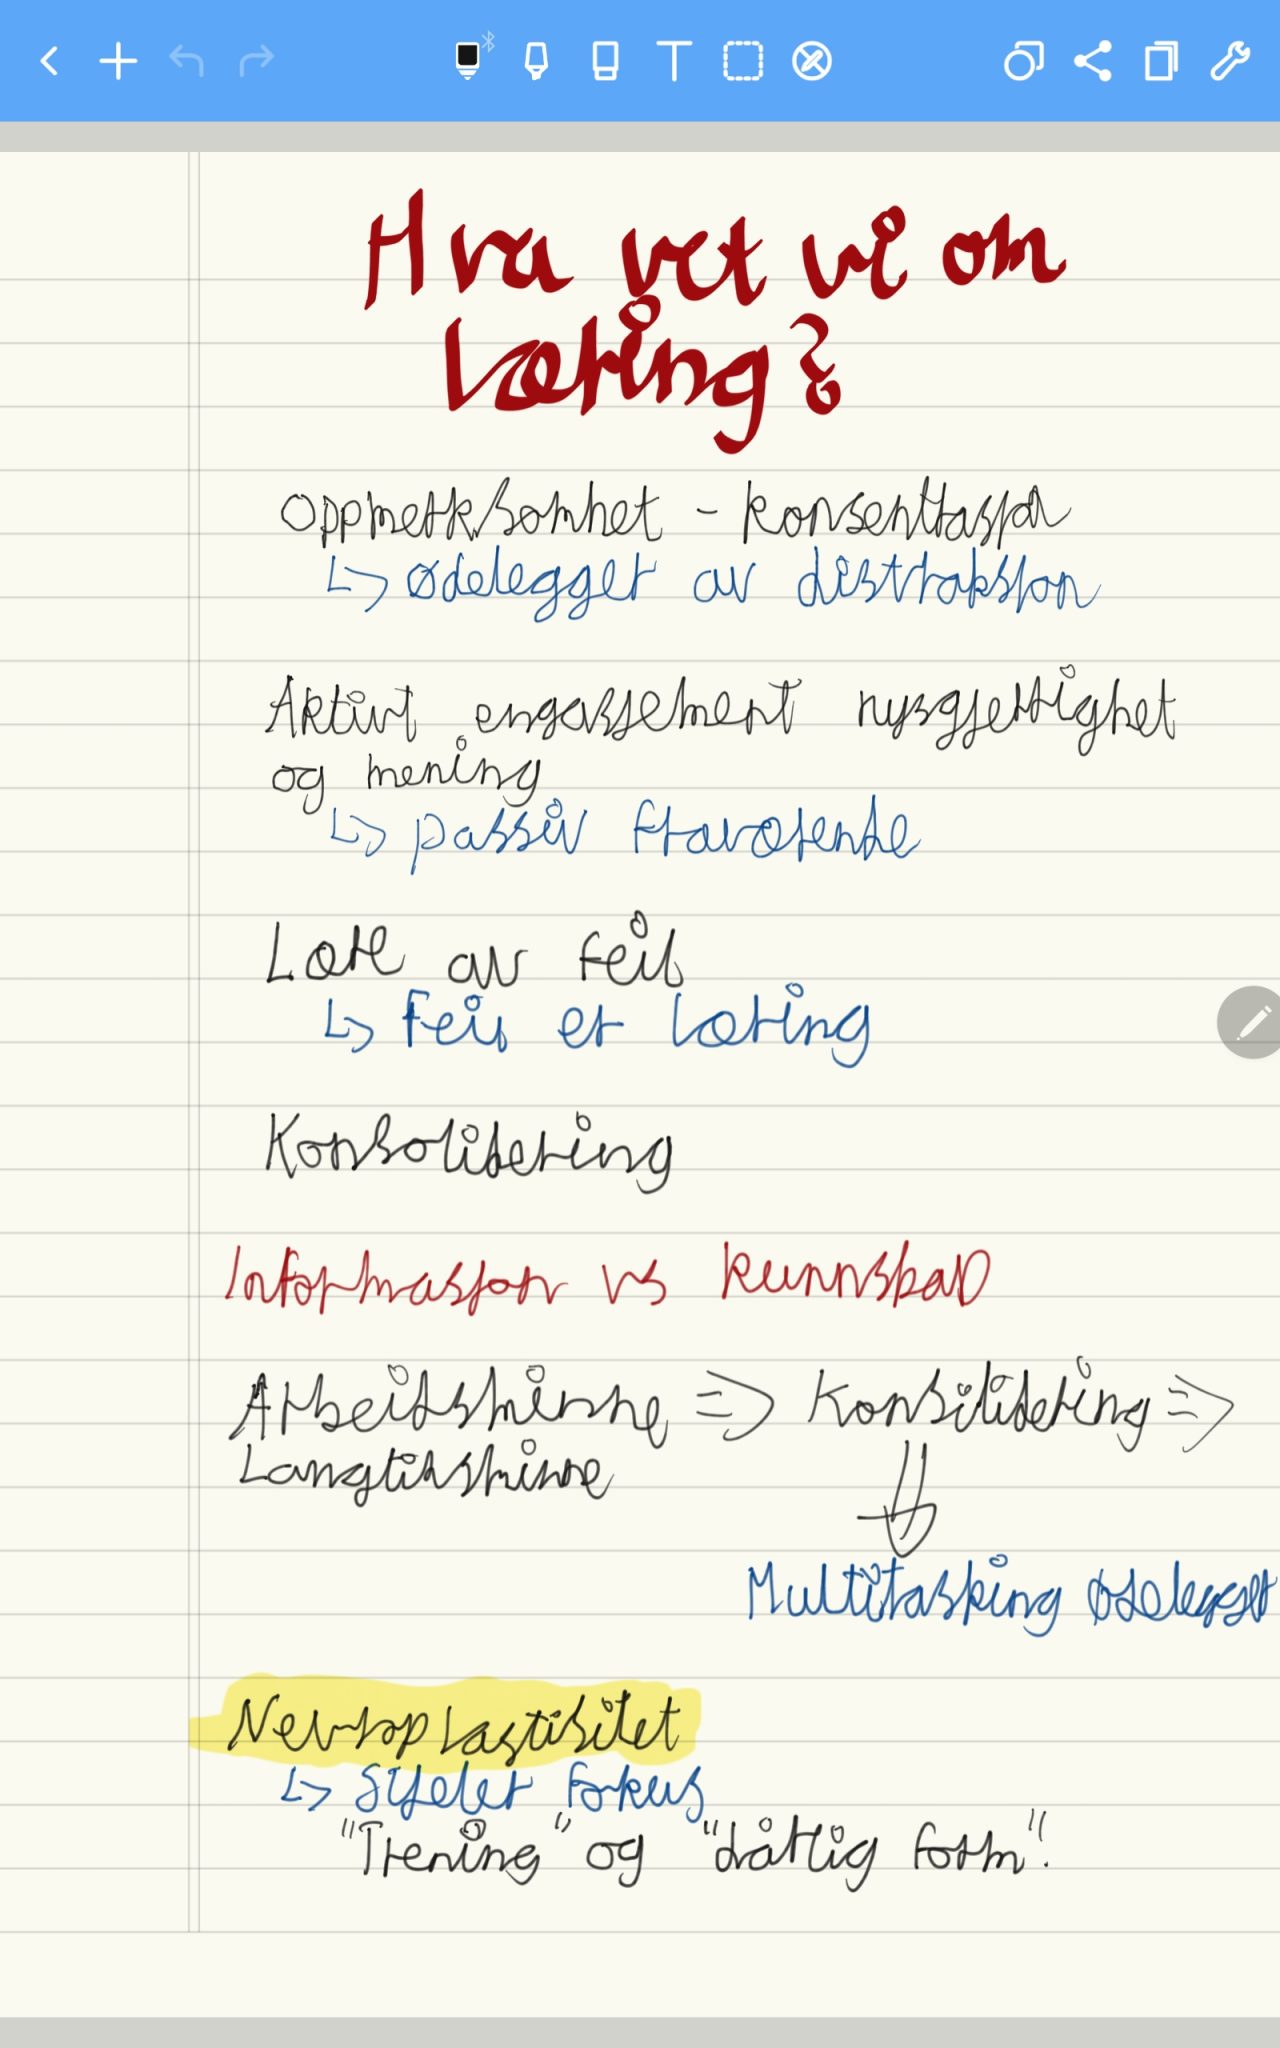 Hva vet vi om
læring?
Oppmerksomhet - konsentrasjon
↳ ødelegger av distraksjon
Aktivt engasjement nysgjerrighet
og mening
↳ passiv fraværende
Lære av feil
↳ Feil er læring
Konsolidering
Informasjon vs kunnskap
Arbeidsminne => Konsilidering =>
Langtidsminne
Multitasking ødelegger
Nevroplastisitet
↳ Stjeler fokus
"Trening" og "dårlig form".